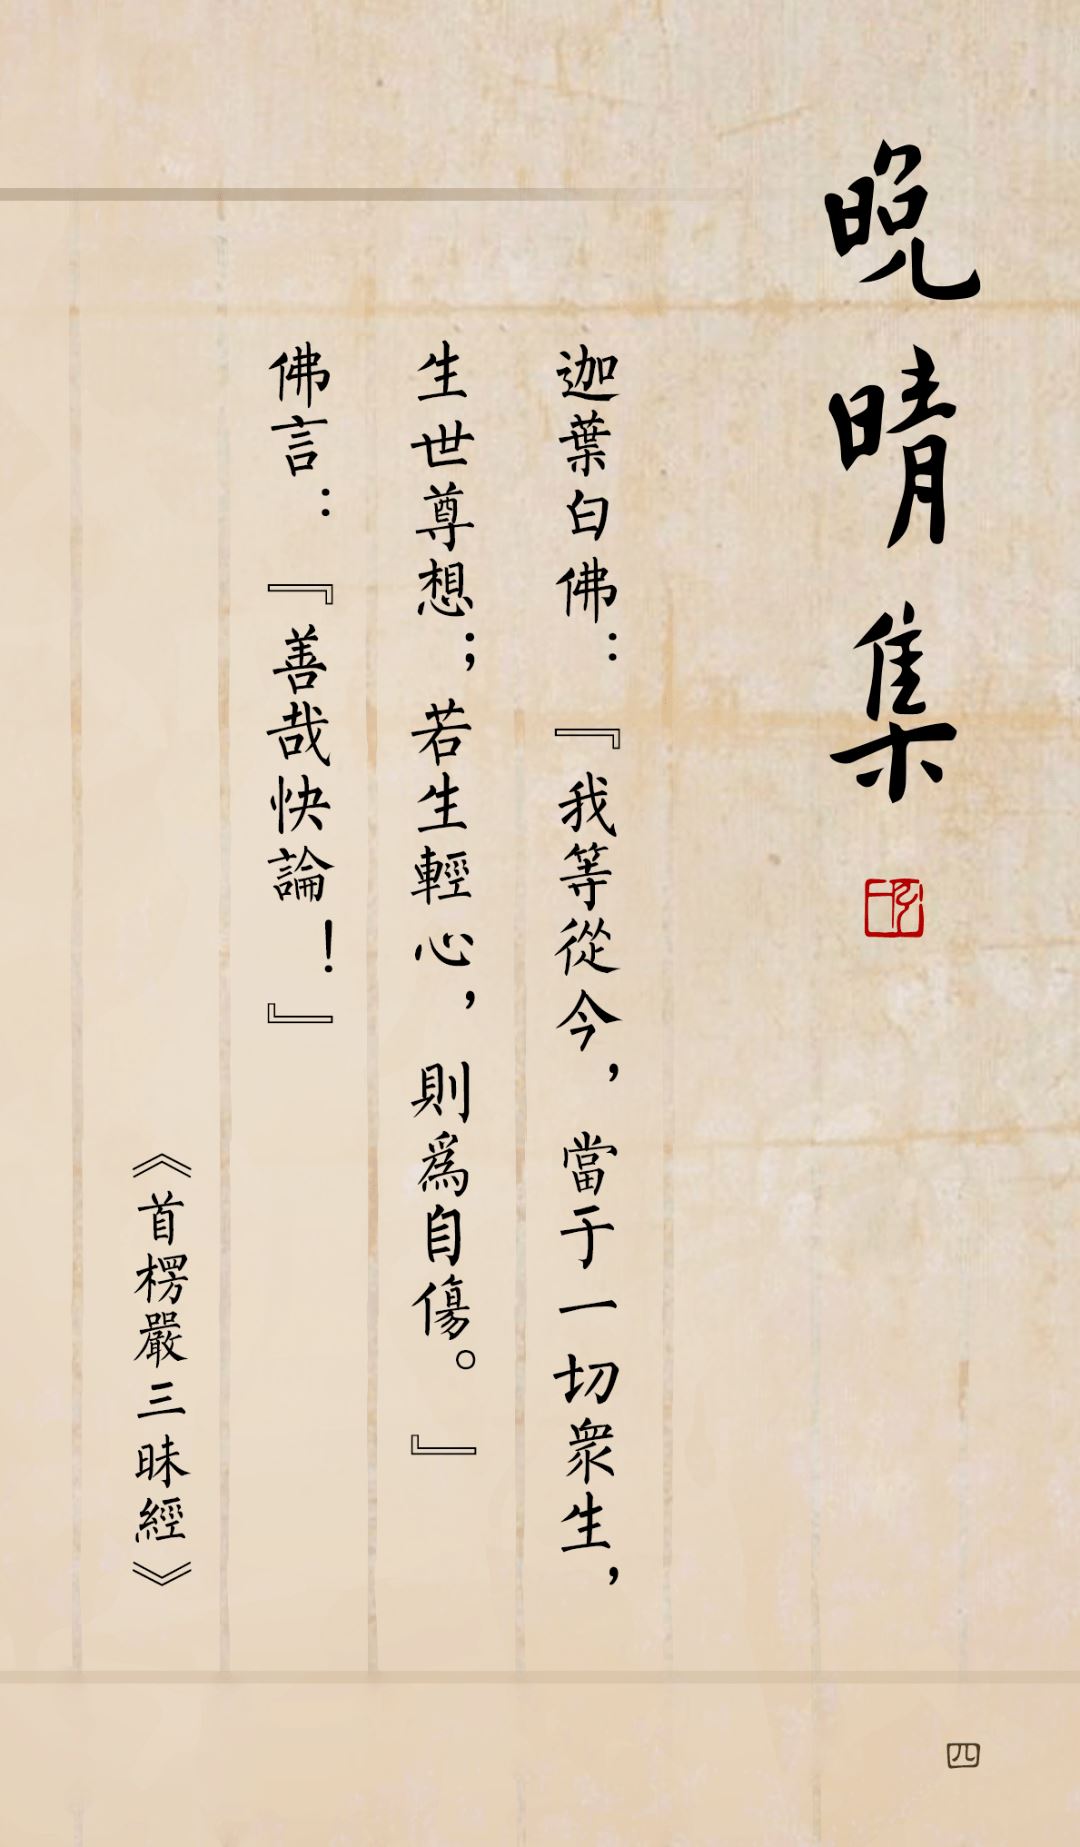 晚晴集
迦葉白佛：『我等從今，當于一切衆生，
生世尊想；若生輕心，則爲自傷。』
佛言：『善哉快論！』
《首楞嚴三昧經》
四